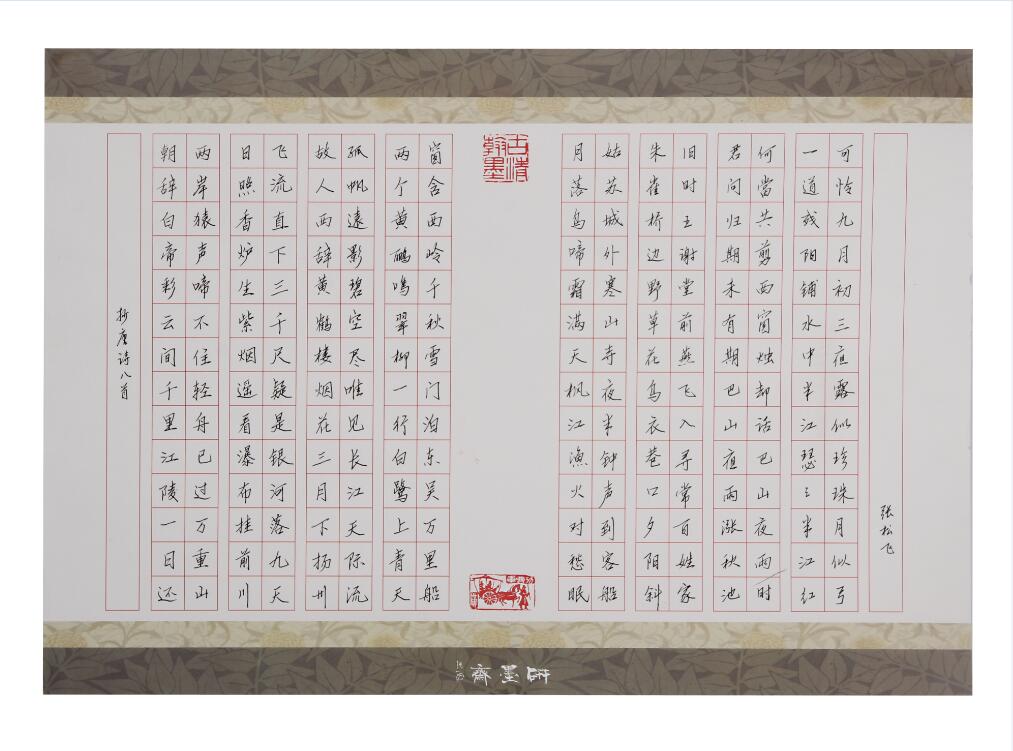 抄唐诗八首
朝辞白帝彩云间千里江陵一日还
两岸猿声啼不住轻舟已过万重山
日照香炉生紫烟遥看瀑布挂前川
飞流直下三千尺疑是银河落九天
故人西辞黄鹤楼烟花三月下扬州
孤帆遠影碧空尽唯见长江天际流
两个黄鹂鸣翠柳一行白鹭上青天
窗含西岭千秋雪门泊东吴万里船
古清翰墨
月落乌啼霜满天枫江渔火对愁眠
姑苏城外寒山寺夜半钟声到客船
朱雀桥边野草花乌衣巷口夕阳斜
旧时王谢堂前燕飞入寻常百姓家
君问归期未有期巴山夜雨涨秋池
何當共剪西窗烛却话巴山夜雨时
一道残阳铺水中半江瑟々半江红
可怜九月初三夜露似珍珠月似弓
张松飞
研墨齋